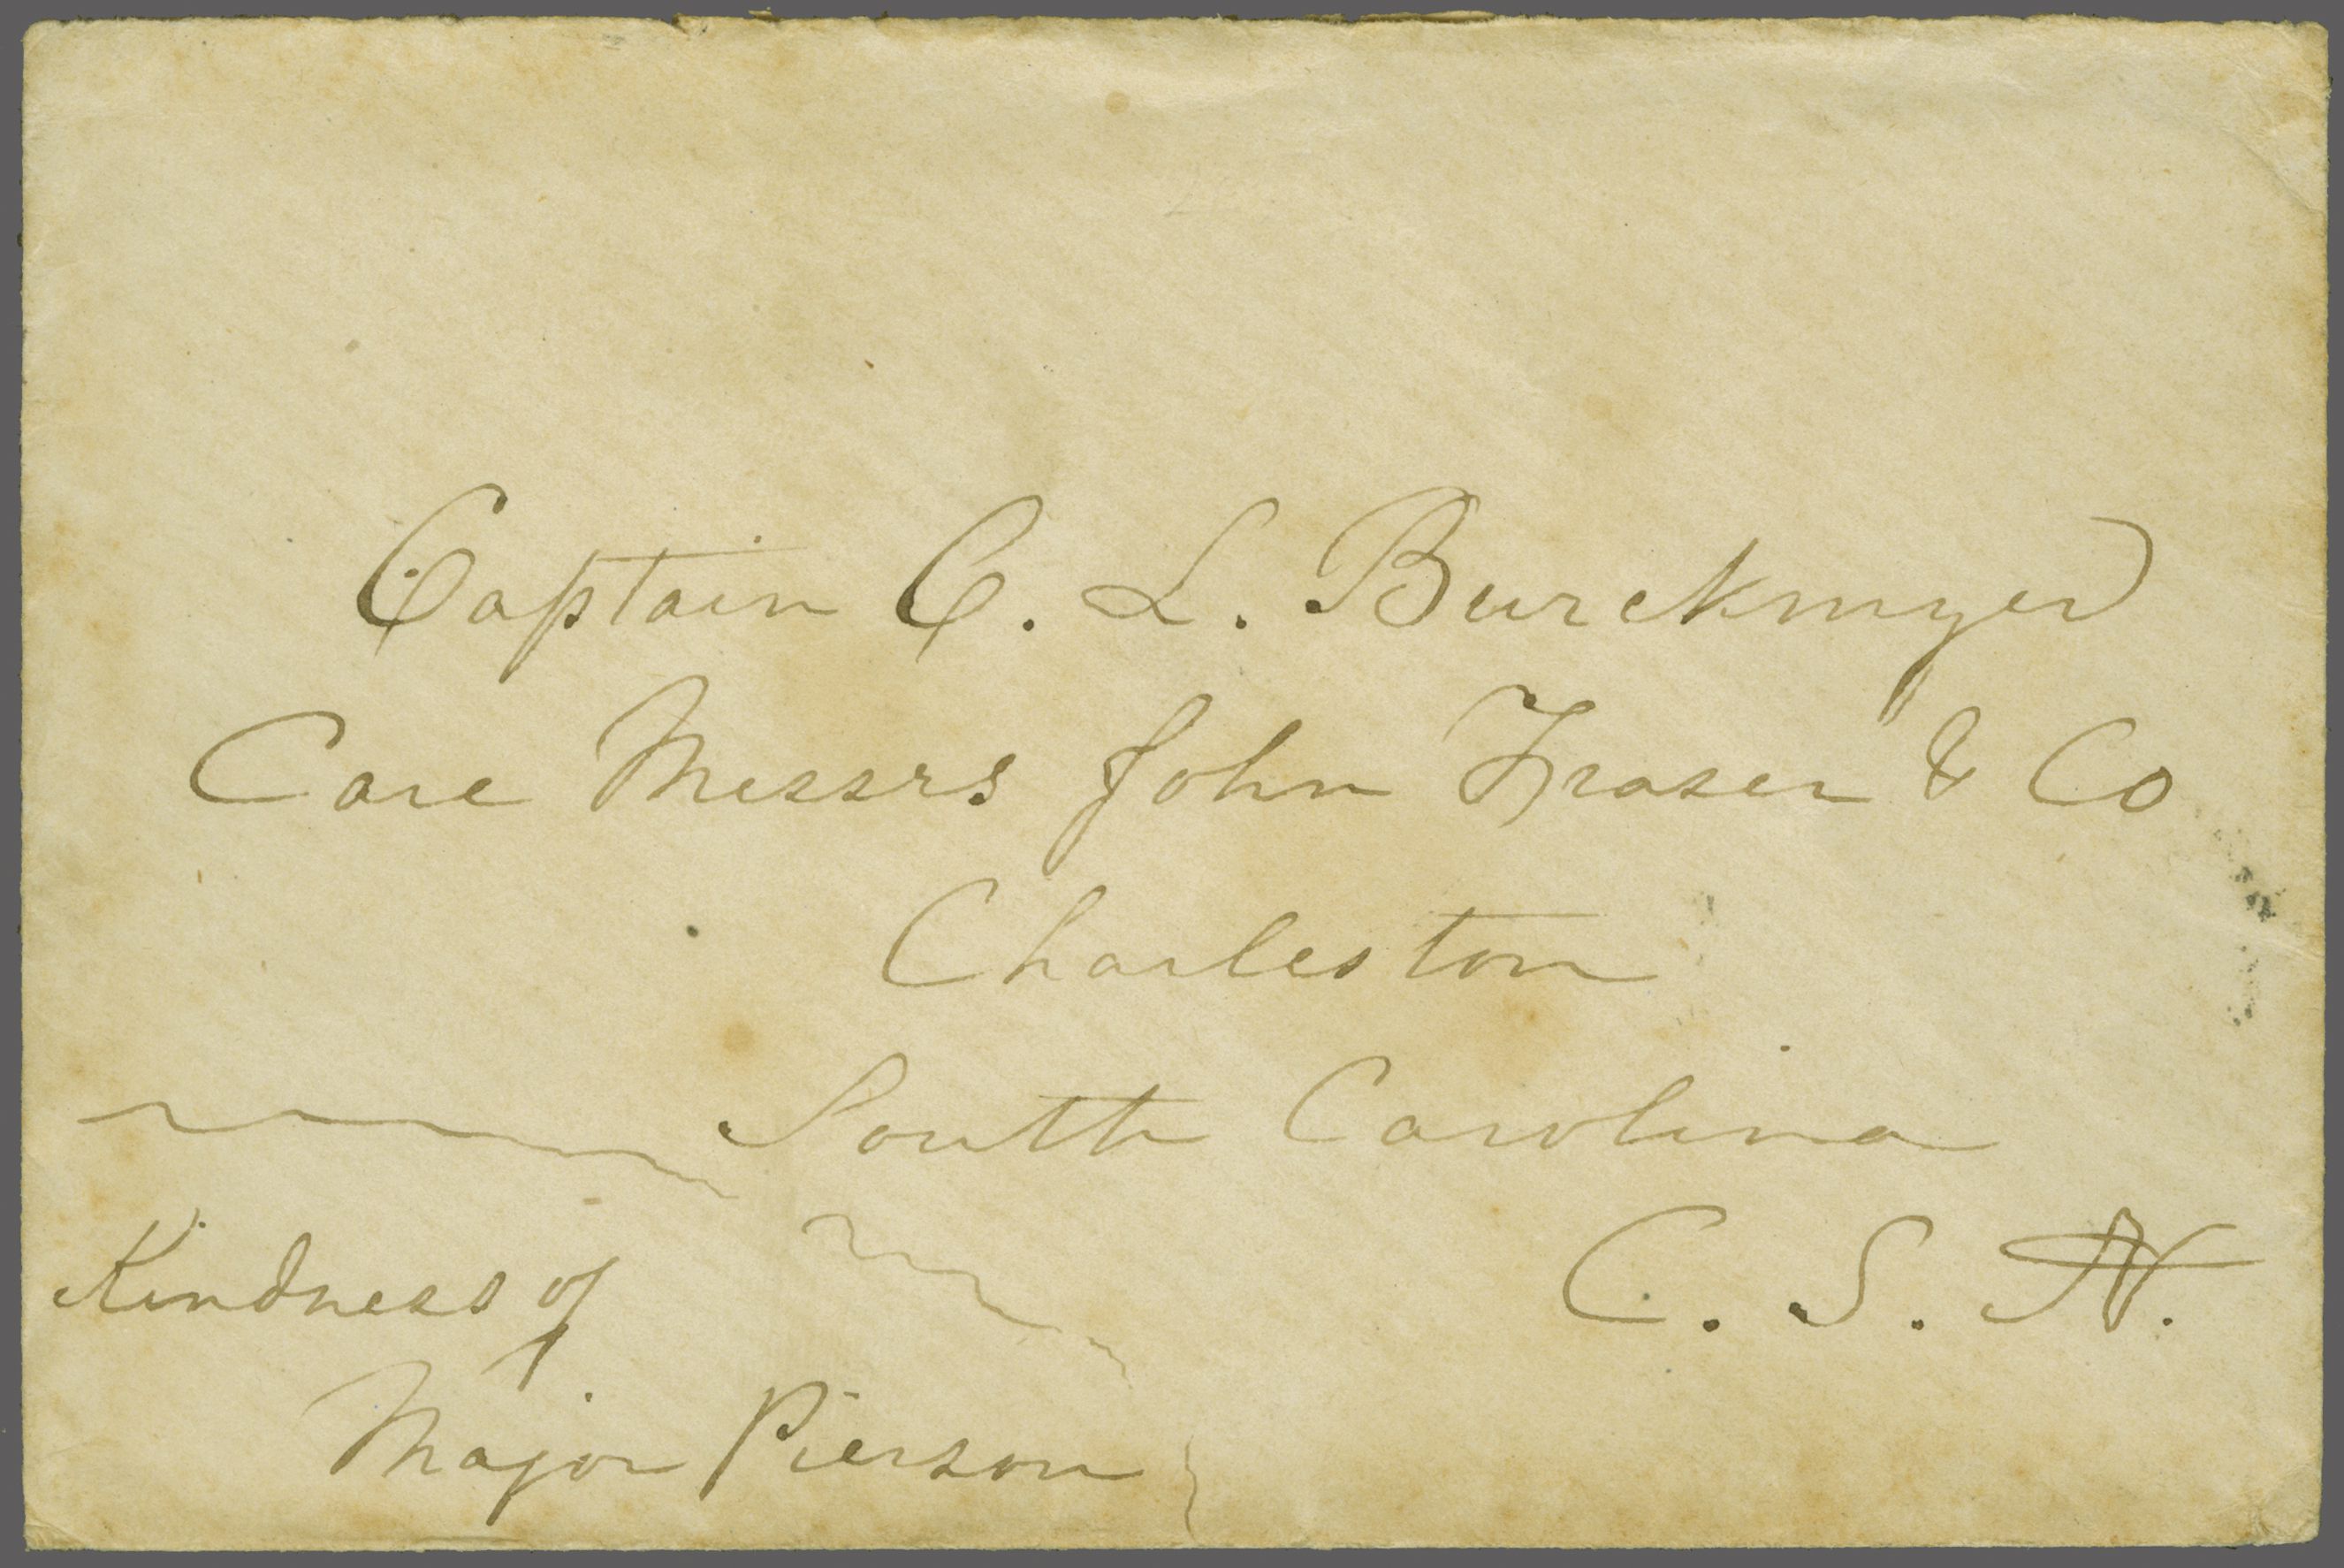 Captain C. L. Burckmyer
Care Messrs John Fraser & Co
Charleston
South Carolina
C. S. A.
Kindness of
Major Pierson